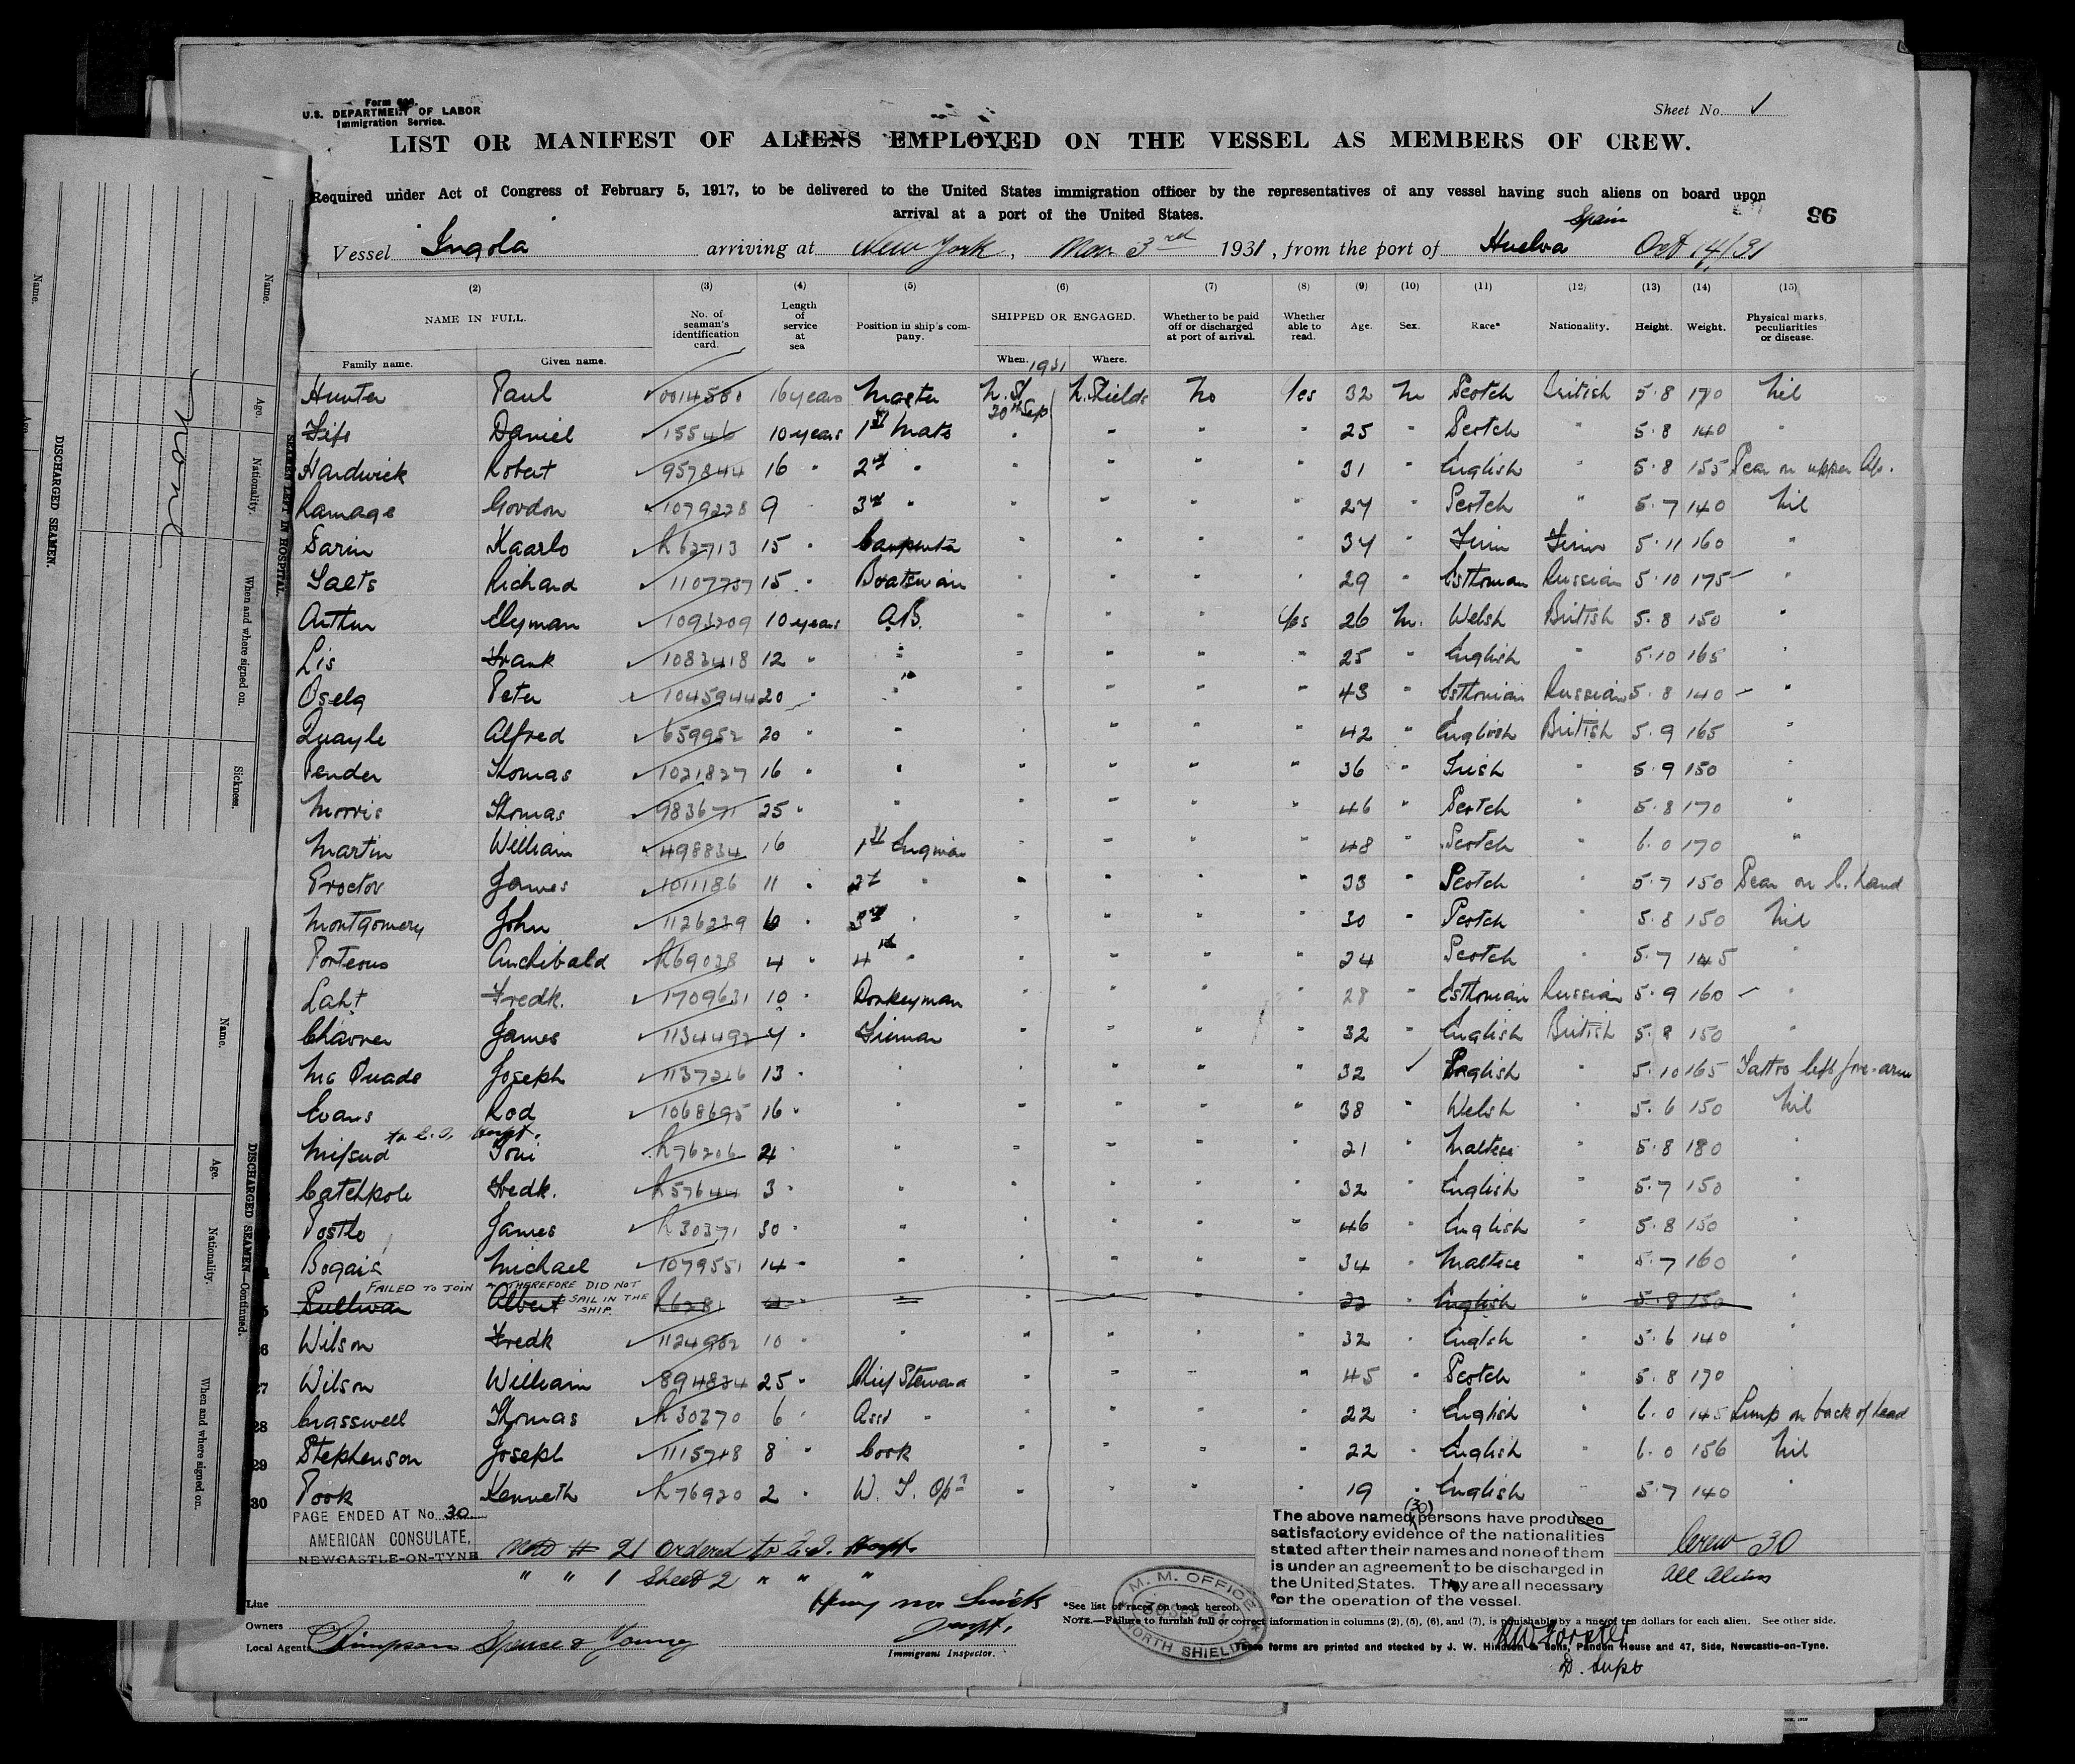 Form 689.
U.S. DEPARTMENT OF LABOR
Immigration Service.
Sheet No. 1
LIST OR MANIFEST OF ALIENS EMPLOYED ON THE VESSEL AS MEMBERS OF CREW.
Required under Act of Congress of February 5, 1917, to be delivered to the United States immigration officer by the representatives of any vessel having such aliens on board upon
arrival at a port of the United States.
86
Vessel Ingola arriving at New York, Nov. 3rd 1931, from the port of Huelva Spain Oct 14/31
(2) (3) (4) (5) (6) (7) (8) (9) (10) (11) (12) (13) (14) (15)
NAME IN FULL. No. of seaman's identification card. Length of service at sea Position in ship's company. SHIPPED OR ENGAGED. Whether to be paid off or discharged at port of arrival. Whether able to read. Age. Sex. Race* Nationality. Height. Weight. Physical marks, peculiarities or disease.
Family name. Given name. When. 1931 Where.
Hunter Paul 0014580 16 years Master 30th Sep N. Shields No Yes 32 M Scotch British 5.8 170 Nil
Fife Daniel 15546 10 years 1st Mate " " " " 25 " Scotch " 5.8 140 "
Hardwick Robert 957844 16 " 2nd " " " " " 31 " English " 5.8 155 Scar on upper lip.
Ramage Gordon 1079228 9 3rd " " " " " 27 " Scotch " 5.7 140 Nil
Sarin Kaarlo R62713 15 " Carpenter " " " " 34 " Finn Finn 5.11 160 "
Salts Richard 1107737 15 " Boatswain " " " " 29 " Esthonian Russian 5.10 175 "
Arthur Clyman 1093209 10 years A.B. " " " Yes 26 M. Welsh British 5.8 150 "
Lis Frank 1083418 12 " " " " " " 25 " English " 5.10 165 "
Osela Peter 1045944 20 " " " " " " 43 " Esthonian Russian 5.8 140 "
Quayle Alfred 659952 20 " " " " " 42 " English British 5.9 165 "
Pender Thomas 1021827 16 " " " " " " 36 " Irish " 5.9 150 "
Morris Thomas 983671 25 " " " " " " 46 " Scotch " 5.8 170 "
Martin William 498834 16 1st Engineer " " " " 48 " Scotch " 6.0 170 "
Proctor James 1011186 11 " 2nd " " " " " 33 " Scotch " 5.7 150 Scar on l. hand
Montgomery John 1126229 6 " 3rd " " " " " 30 " Scotch " 5.8 150 Nil
Porteous Archibald R69028 4 " 4th " " " " " 24 Scotch " 5.7 145 "
Laht Fredk. 1709631 10 " Donkeyman " " " " 28 " Esthonian Russian 5.9 160 "
James 1134492 4 " Fireman " " " " 32 " English British 5.8 150 "
Mc Quade Joseph 1137216 13 " " " " " 32 English " 5.10 165 Tattoo left fore-arm
Evans Rod 1068695 16 " " " " " " 38 " Welsh " 5.6 150 Nil
to E.I. Hospt.
Mifsud Toni R76206 4 " " " " " " 21 " Maltese " 5.8 180 "
Catchpole Fredk. R57644 3 " " " " " " 32 " English " 5.7 150 "
Postle James R30371 30 " " " " " " 46 " English " 5.8 150 "
Michael 1079551 14 " " " " " " 34 " Maltese " 5.7 160 "
FAILED TO JOIN THEREFORE DID NOT SAIL IN THE SHIP.
Sullivan Albert R6281 " " " " 22 English " 5.8 150 "
26 Wilson Fredk 1124952 10 " " " " " " 32 " English " 5.6 140 "
27 Wilson William 894834 25 " Chief Steward " " " " 45 " Scotch " 5.8 170
28 Crasswell Thomas R30370 6 " Asst " " " " " 22 " English " 6.0 145 Lump on back of head
29 Stephenson Joseph 1115748 8 " Cook " " " " 22 " English " 6.0 156 Nil
30 Pook Kenneth R76920 2 " W. T. Opr " " " " 19 " English 5.7 140 "
PAGE ENDED AT No. 30
AMERICAN CONSULATE,
NEWCASTLE-ON-TYNE
Note # 21 ordered to E.I. Hospt.
" " 1 Sheet 2 " " "
The above named (30) persons have produced
satisfactory evidence of the nationalities
stated after their names and none of them
is under an agreement to be discharged in
the United States. They are all necessary
for the operation of the vessel.
Crew 30
All Aliens
Line
Owners
Local Agents Simpson Spence & Young
Inspt.
Immigrant Inspector.
M. M. OFFICE
30 SEP 31
NORTH SHIELDS
*See list of races on back hereof.
NOTE.—Failure to furnish full or correct information in columns (2), (5), (6), and (7), is punishable by a fine of ten dollars for each alien. See other side.
These forms are printed and stocked by J. W. Hindson & Sons, Pandon House and 47, Side, Newcastle-on-Tyne.
D. Supt
SEAMEN LEFT IN HOSPITAL.
Name. Age. Nationality. When and where signed on. Sickness.
None
DISCHARGED SEAMEN.
Name.
DISCHARGED SEAMEN—Continued.
Name. Age. Nationality. When and where signed on.